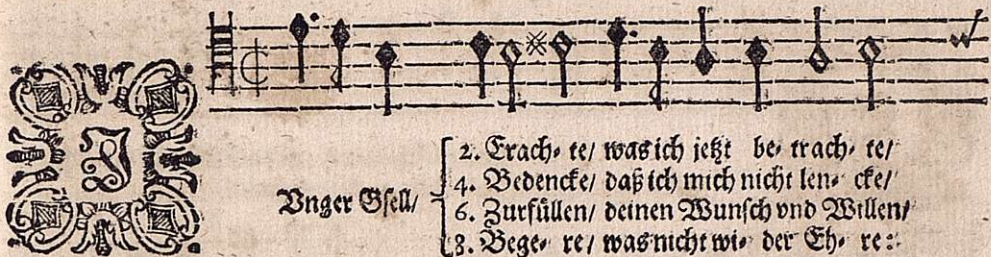 J
2. Erach⸗ te/ was ich jetzt be⸗ trach⸗ te/
Vnger Gsell/ 4. Bedencke/ daß ich mich nicht len⸗ cke/
6. Zurfüllen/ deinen Wunsch vnd Willen/
8. Bege⸗ re/ was nicht wi⸗ der Eh⸗ re: